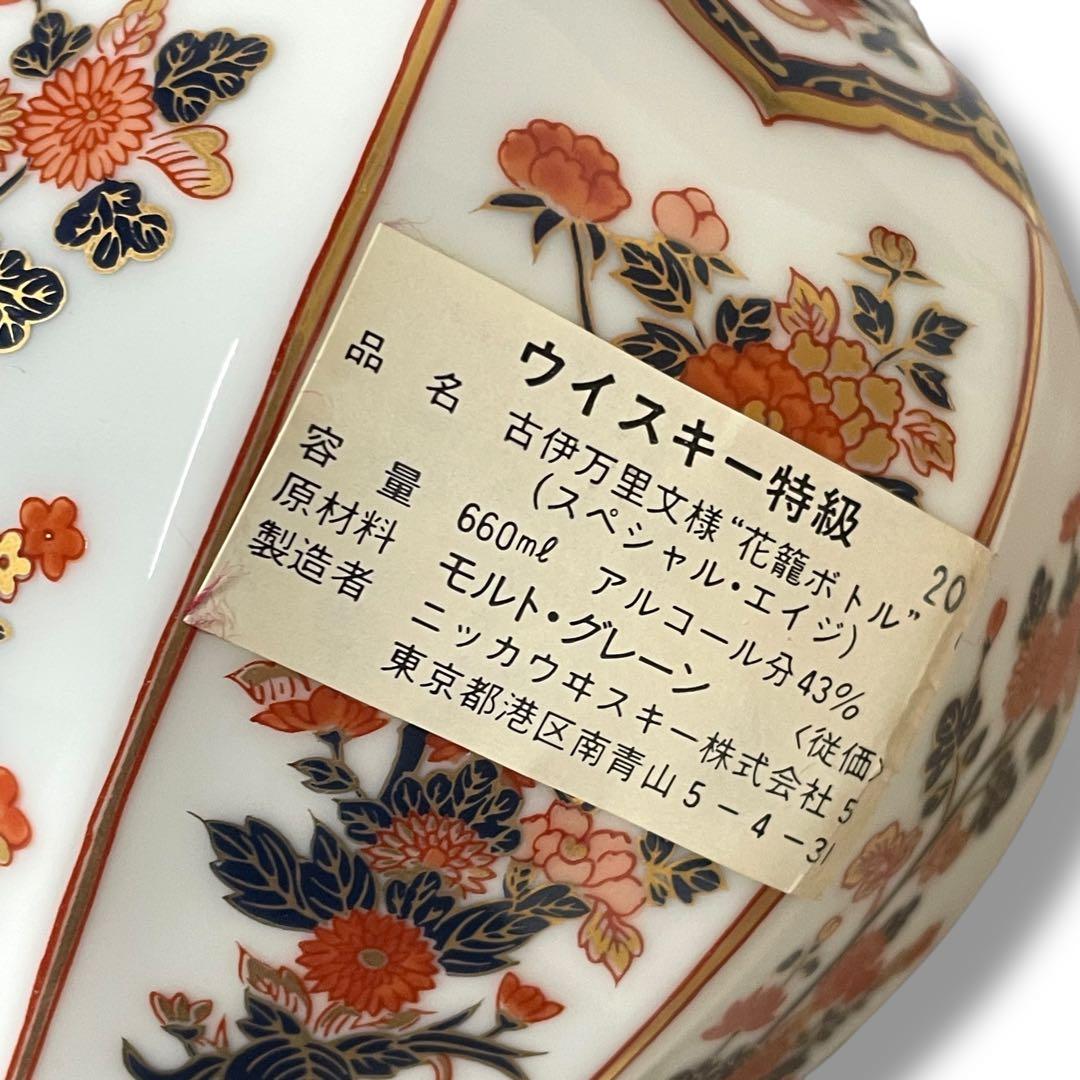 ウイスキー特級 20
品名 古伊万里文様“花籠ボトル”
(スペシャル・エイジ)
容量 660ml アルコール分43%
原材料 モルト・グレーン 〈従価〉
製造者 ニッカウヰスキー株式会社 5
東京都港区南青山5-4-31